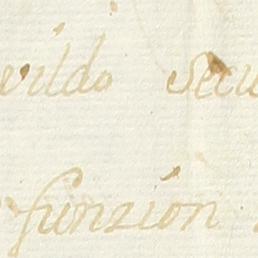 vildo Secu
funzion